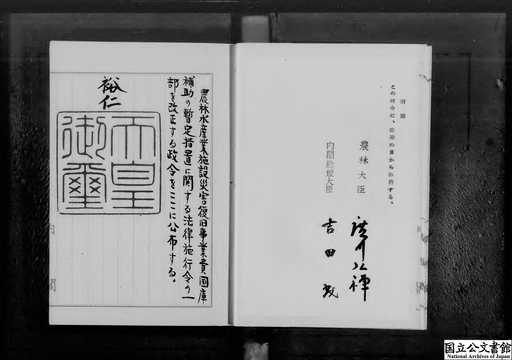 附則
この政令は、公布の日から施行する。
農林大臣
内閣総理大臣
吉田茂
農林水産業施設災害復旧事業費国庫
補助の暫定措置に関する法律施行令の一
部を改正する政令をここに公布する。
裕仁
天皇
御璽
国立公文書館
National Archives of Japan